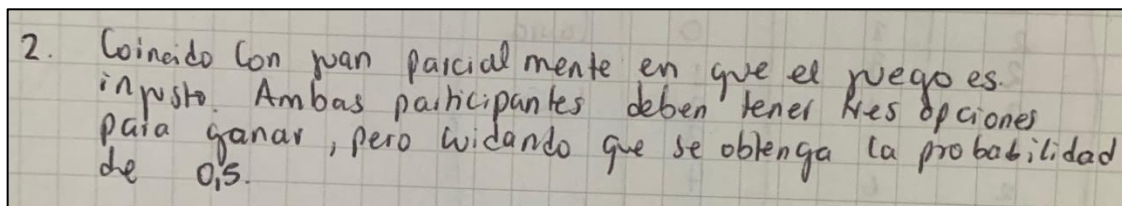 2. Coincido con Juan parcialmente en que el juego es
injusto. Ambas participantes deben tener tres opciones
para ganar, pero cuidando que se obtenga la probabilidad
de 0,5.